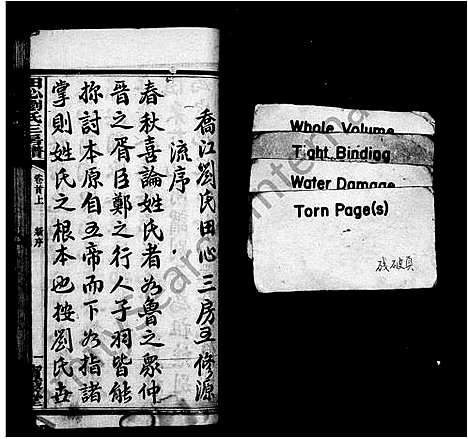 喬江劉氏田心三房五修源
流序
春秋喜論姓氏者如魯之眾仲
晉之胥臣鄭之行人子羽皆能
探討本原自五帝而下如指諸
掌則姓氏之根本也按劉氏在
田心劉氏三房譜
卷首上
新序
Whole Volume
Tight Binding
Water Damage
Torn Page(s)
残破頁